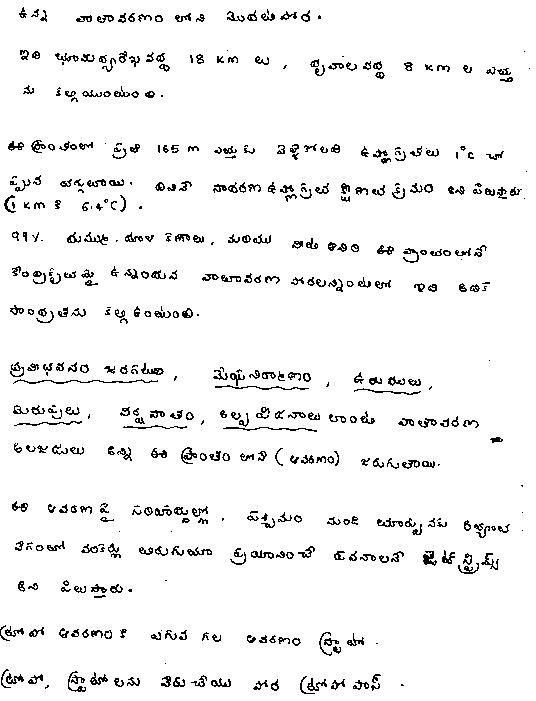 ఉన్న వాతావరణం లోని మొదటి పొర.
ఇది భూమధ్యరేఖవద్ద 18 km లు, ధృవాలవద్ద 8 km ల ఎత్తు
ను కల్గియుంటుంది.
ఈ ప్రాంతంలో ప్రతి 165 m ఎత్తుకు వెళ్లేకొలది ఉష్ణోగ్రతలు 1°C చొ
ప్పున తగ్గుతాయి. దీనినే సాధారణ ఉష్ణోగ్రత క్షీణతా క్రమం అని పిలుస్తారు
(1 km కి 6.4°C).
99% దుమ్ము, ధూళి కణాలు, మరియు నీటి ఆవిరి ఈ ప్రాంతంలోనే
కేంద్రీకృతమై ఉన్నందున వాతావరణ పొరలన్నింటిలో ఇది అధిక
సాంద్రతను కల్గి ఉంటుంది.
మేఘనిర్మాణం, ఉరుములు,
మెరుపులు, వర్షపాతం, అల్పపీడనాలు లాంటి వాతావరణ
అలజడులు అన్ని ఈ ప్రాంతం లోనే (ఆవరణం) జరుగుతాయి.
ఈ ఆవరణ పై సరిహద్దుల్లో, పశ్చిమం నుండి తూర్పునకు అత్యంత
వేగంతో వంకర్లు తిరుగుతూ ప్రయాణించే పవనాలనే జెట్ స్ట్రీమ్స్
అని పిలుస్తారు.
ట్రోపో ఆవరణంకి ఎగువ గల ఆవరణం స్ట్రాటో.
ట్రోపో, స్ట్రాటోలను వేరుచేయు పొర ట్రోపోపాస్.